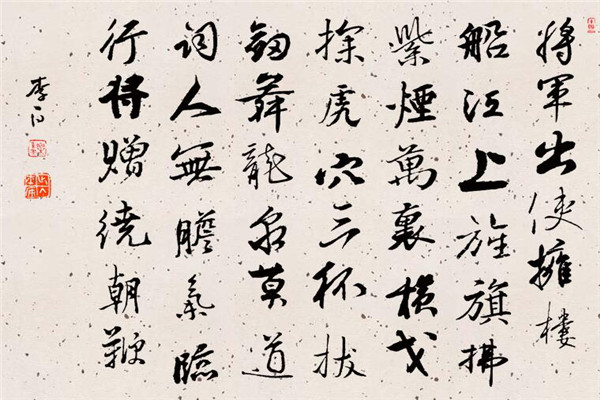 將軍出使擁樓
船江上旌旗拂
紫煙萬裏橫戈
探虎穴三杯拔
劍舞龍泉莫道
詞人無膽氣臨
行將贈繞朝鞭
李白